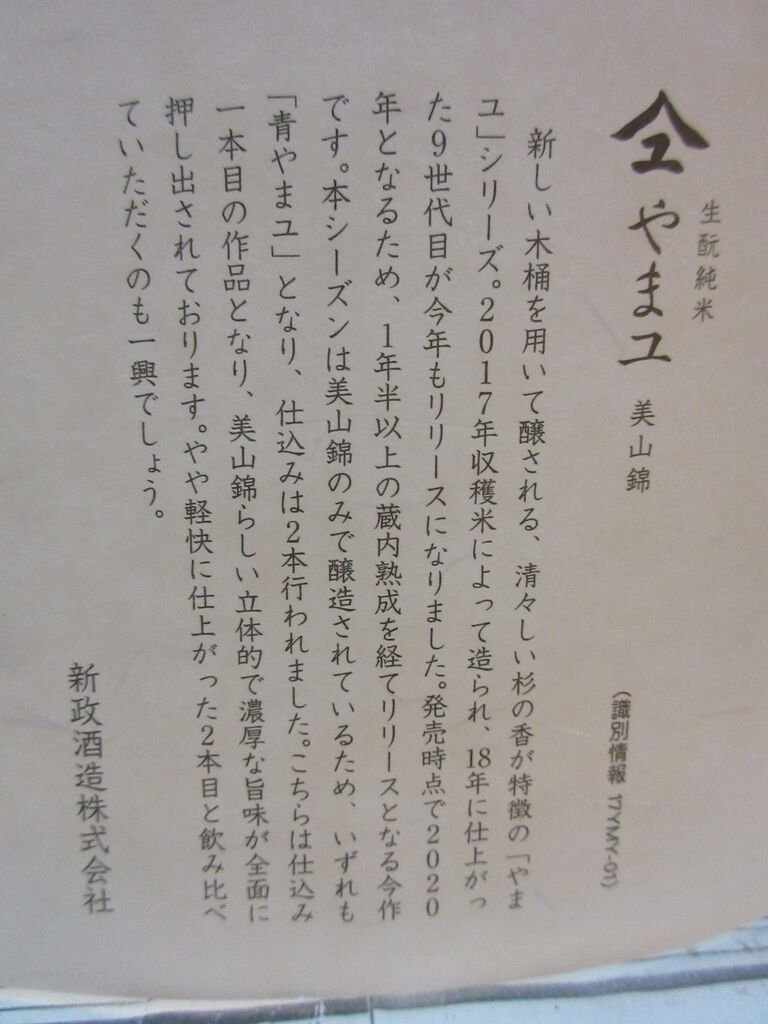 生酛純米
𠆢ユ やまユ 美山錦
(識別情報 17YMY-01)
新しい木桶を用いて醸される、清々しい杉の香が特徴の「やま
ユ」シリーズ。2017年収穫米によって造られ、18年に仕上がっ
た9世代目が今年もリリースになりました。発売時点で2020
年となるため、1年半以上の蔵内熟成を経てリリースとなる今作
です。本シーズンは美山錦のみで醸造されているため、いずれも
「青やまユ」となり、仕込みは2本行われました。こちらは仕込み
一本目の作品となり、美山錦らしい立体的で濃厚な旨味が全面に
押し出されております。やや軽快に仕上がった2本目と飲み比べ
ていただくのも一興でしょう。
新政酒造株式会社